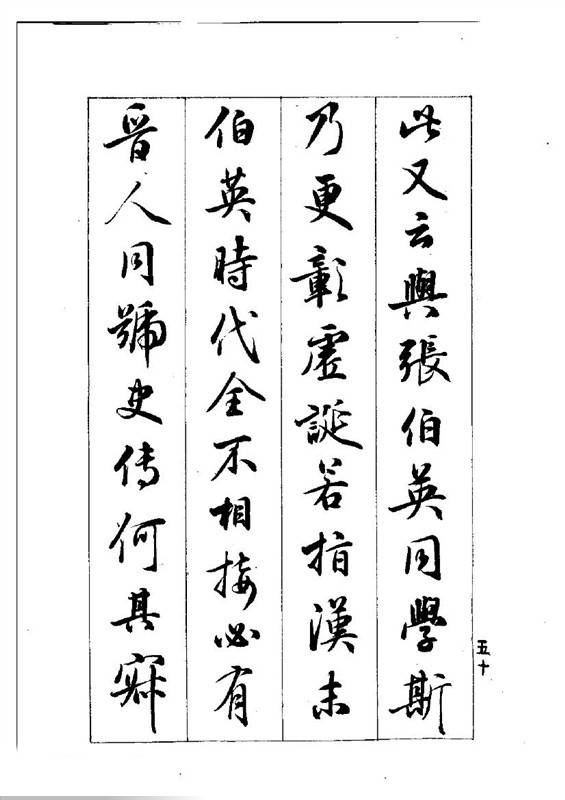 此又云與張伯英同學斯
乃更彰虛誕若指漢末
伯英時代全不相接必有
晉人同號史傳何其寂
五十